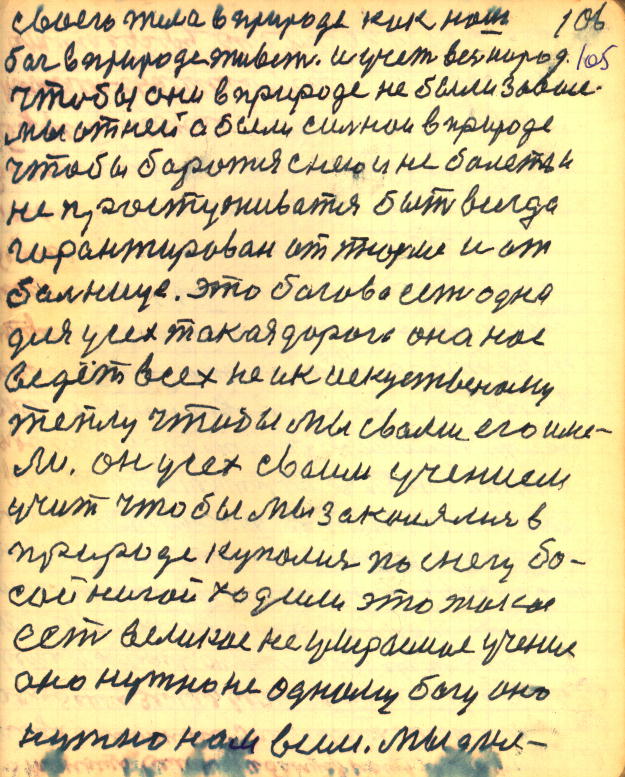 своего тела в природе как наш 106
бог в природе живет. и учет вес народ. 105
чтобы они в природе не были завис-
мы от ней а были силнои в природе
чтобы боротися с нею и не болетьи
не простуживатя быт всегда
гарантирован от тюрми и от
болнице. это богова ест одна
для усех такая дорога она нас
ведёт всех не ик искуственому
теплу чтобы мы свами его име-
ли. он усех своим учением
учит чтобы мы закалялися в
природе купалися по снегу бо-
сой ногой ходили это такое
ест великое не умираемое учение
оно нужно не одному богу оно
нужно нам всем. мы для-